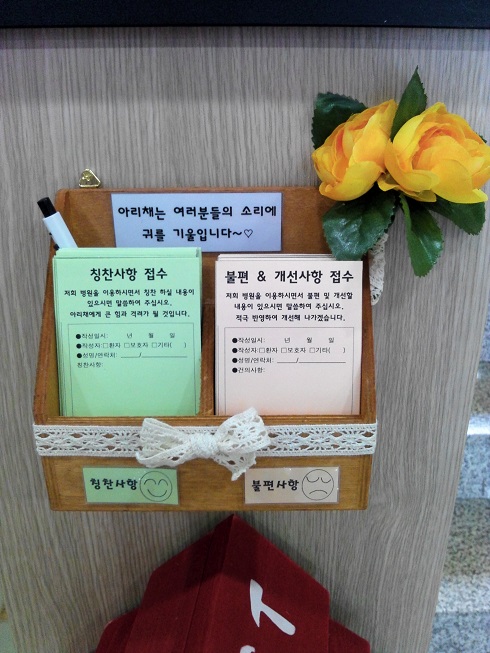 아리채는 여러분들의 소리에
귀를 기울입니다~♡
칭찬사항 접수
저희 병원을 이용하시면서 칭찬 하실 내용이
있으시면 말씀하여 주십시오.
아리채에게 큰 힘과 격려가 될 것입니다.
●작성일시: 년 월 일
●작성자:□환자 □보호자 □기타( )
●성명/연락처: ______/______________
칭찬사항:
불편 & 개선사항 접수
저희 병원을 이용하시면서 불편 및 개선할
내용이 있으시면 말씀하여 주십시오.
적극 반영하여 개선해 나가겠습니다.
●작성일시: 년 월 일
●작성자:□환자 □보호자 □기타( )
●성명/연락처: ______/______________
●건의사항:
칭찬사항
불편사항